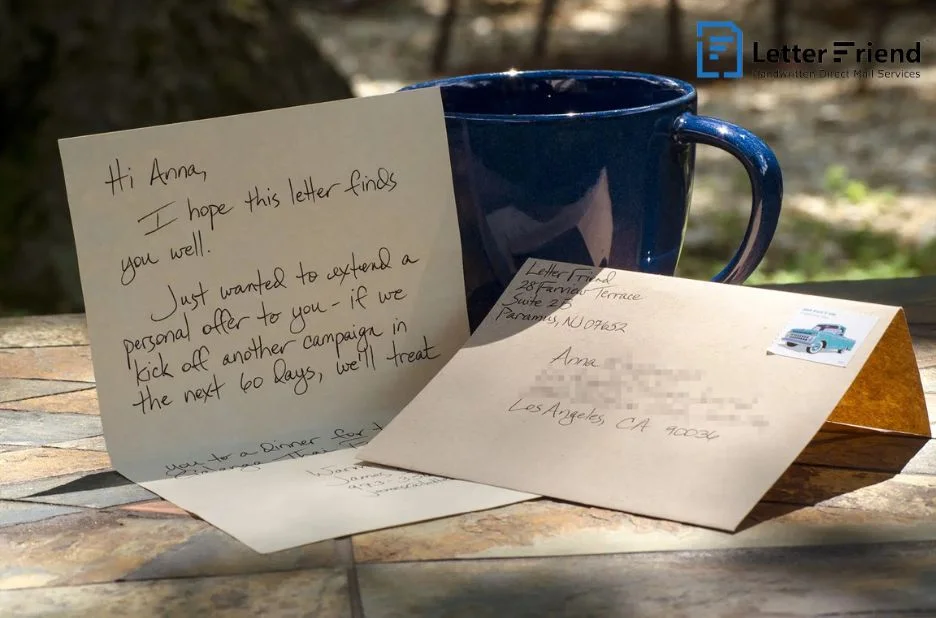 Letter Friend
Handwritten Direct Mail Services
Hi Anna,
I hope this letter finds
you well.
Just wanted to extend a
personal offer to you - if we
kick off another campaign in
the next 60 days, we'll treat
you to a Dinner for
Letter Friend
28 Farview Terrace
Suite 25
Paramus, NJ 07652
Anna
Los Angeles, CA 90036